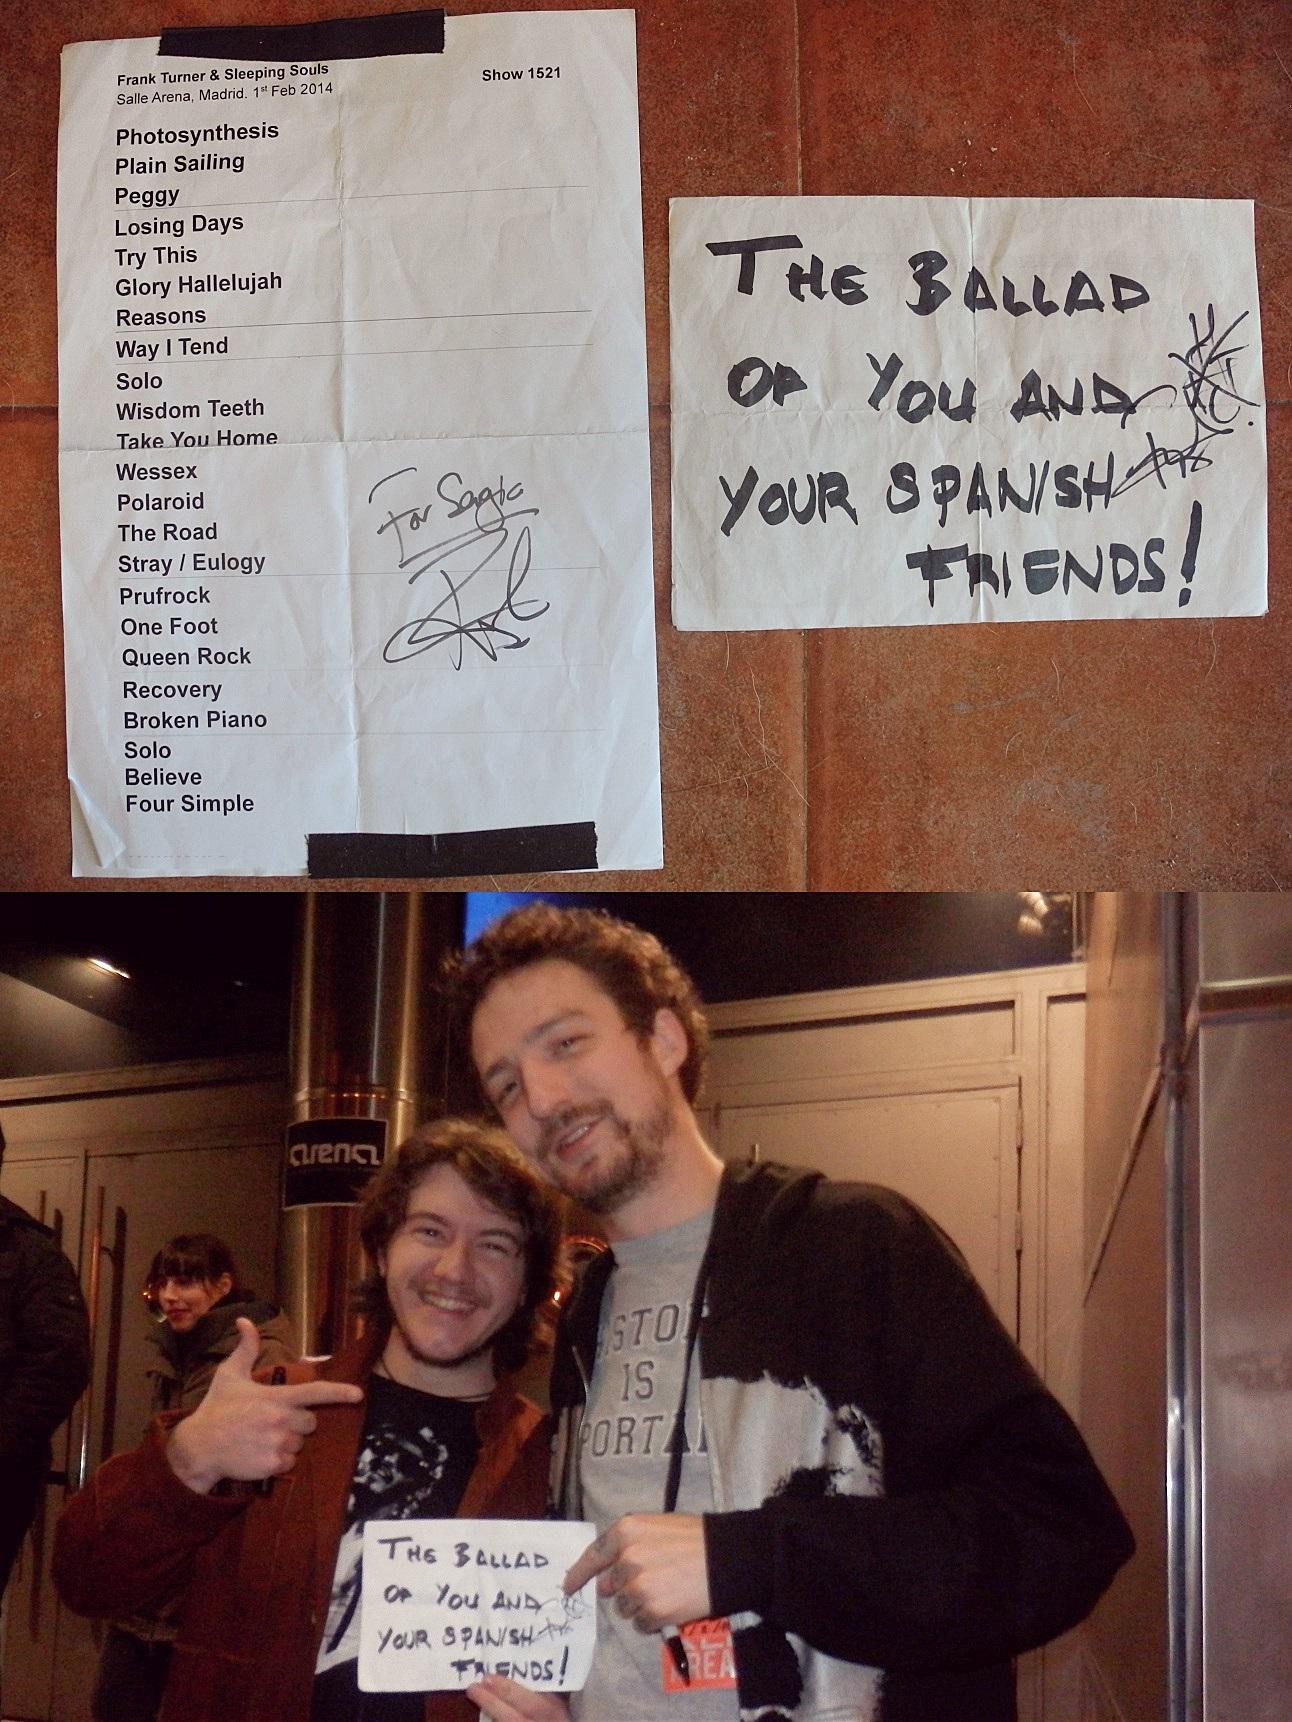 Frank Turner & Sleeping Souls
Show 1521
Salle Arena, Madrid. 1st Feb 2014
Photosynthesis
Plain Sailing
Peggy
Losing Days
Try This
Glory Hallelujah
Reasons
Way I Tend
Solo
Wisdom Teeth
Take You Home
Wessex
Polaroid
The Road
Stray / Eulogy
Prufrock
One Foot
Queen Rock
Recovery
Broken Piano
Solo
Believe
Four Simple
For
THE BALLAD
OF YOU AND
YOUR SPANISH
FRIENDS!
arena
STO
IS
PORTA
THE BALLAD
OF YOU AND
YOUR SPANISH
FRIENDS!